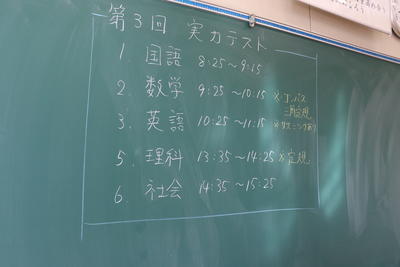 第3回 実力テスト
1. 国語 8:25〜9:15
2. 数学 9:25〜10:15 ※コンパス
三角定規
3. 英語 10:25〜11:15 ※リスニングあり
5. 理科 13:35〜14:25 ※定規
6. 社会 14:35〜15:25